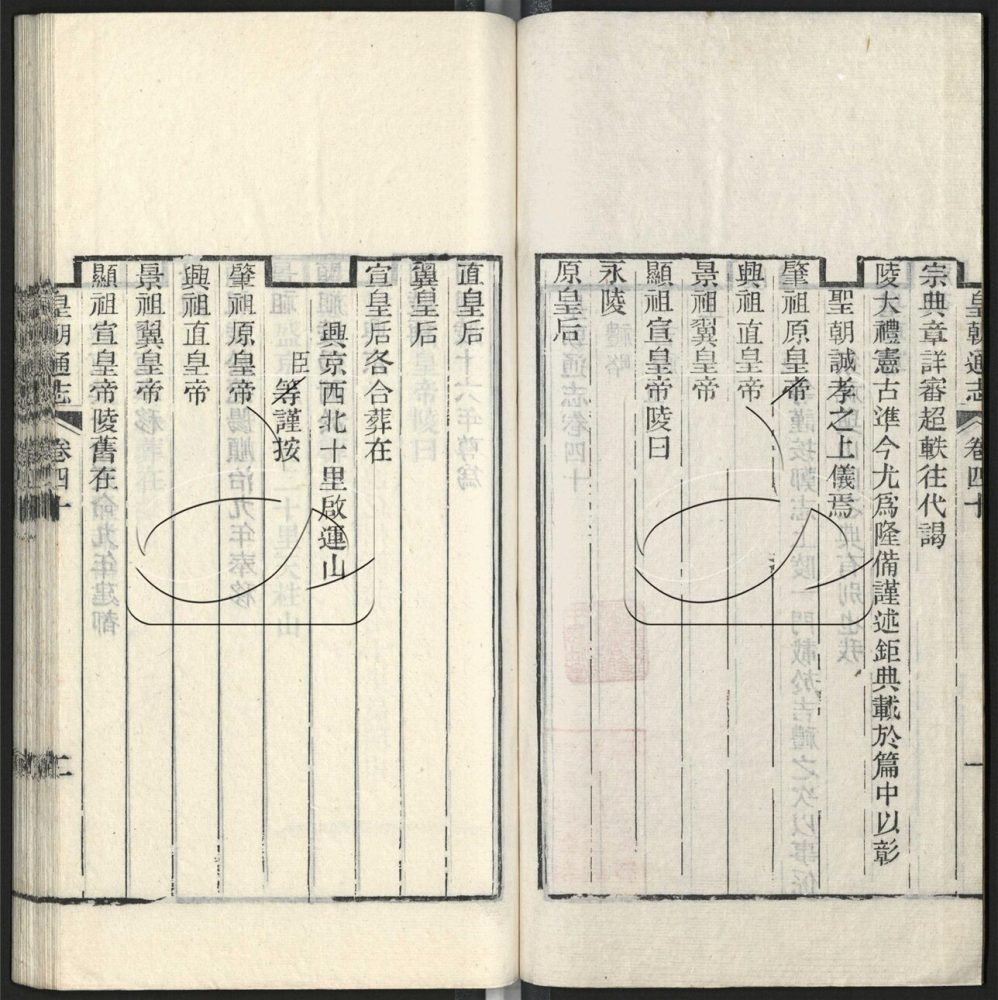 皇朝通志 卷四十 一
宗典章詳審超軼往代謁
陵大禮憲古準今尤爲隆備謹述鉅典載於篇中以彰
聖朝誠孝之上儀焉
肇祖原皇帝
興祖直皇帝
景祖翼皇帝
顯祖宣皇帝陵曰
永陵
原皇后
直皇后
翼皇后
宣皇后各合葬在
興京西北十里啟運山
臣等謹按
肇祖原皇帝
興祖直皇帝
景祖翼皇帝
顯祖宣皇帝陵舊在
皇朝通志 卷四十 二